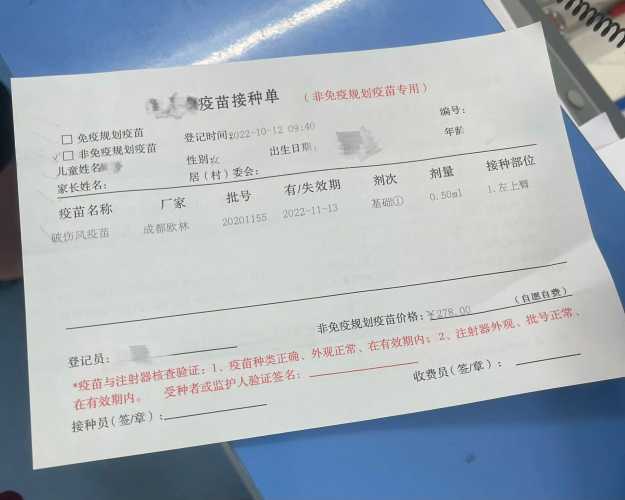 疫苗接种单 （非免疫规划疫苗专用）
□ 免疫规划疫苗 登记时间:2022-10-12 09:40 编号:
√□ 非免疫规划疫苗 性别:女 出生日期: 年龄
儿童姓名 居（村）委会:
家长姓名:
疫苗名称 厂家 批号 有/失效期 剂次 剂量 接种部位
破伤风疫苗 成都欧林 20201155 2022-11-13 基础① 0.50ml 1.左上臂
非免疫规划疫苗价格: ¥278.00 （自愿自费）
登记员:
*疫苗与注射器核查验证: 1、疫苗种类正确、外观正常、在有效期内; 2、注射器外观、批号正常、
在有效期内。 受种者或监护人验证签名:
接种员(签/章): 收费员(签/章):